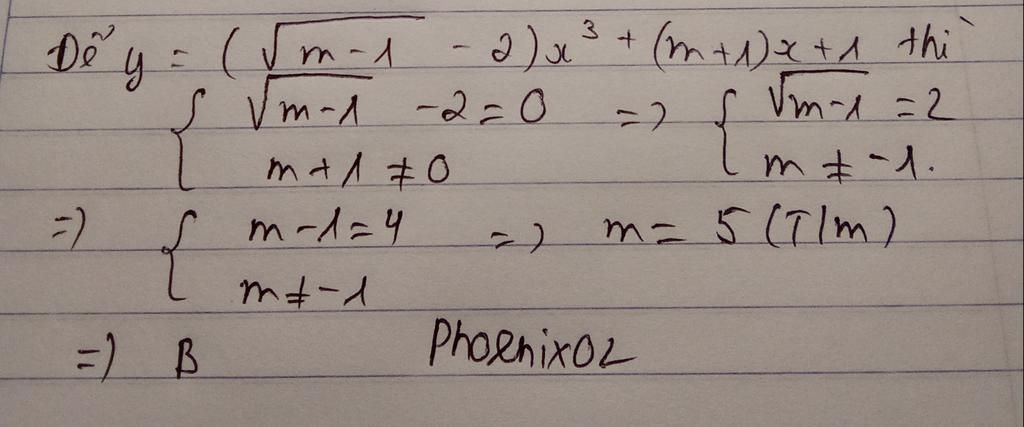 Để y = (√(m-1) - 2)x³ + (m+1)x+1 thì
{ √(m-1) - 2 = 0 => { √(m-1) = 2
m + 1 ≠ 0 m ≠ -1.
=> { m-1=4 => m = 5 (T/m)
m≠-1
=> B Phoenix02